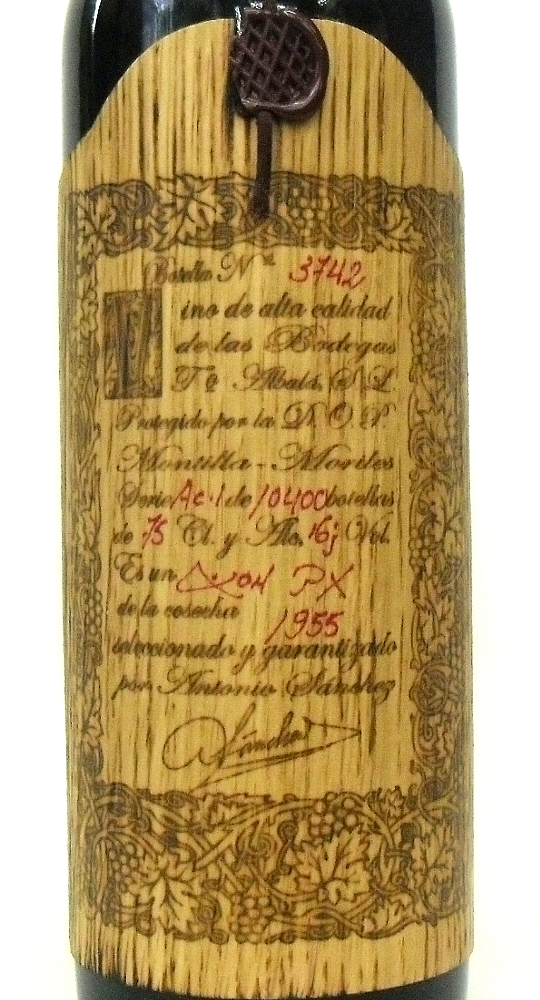 Botella Nº 3742
Vino de alta calidad
de las Bodegas
Tº Albalá, S. L.
Protegido por la D. O. P.
Montilla-Moriles
Serie Ac.1 de 10400 botellas
de 75 Cl. y Alc. 16 Vol.
Es un PX
de la cosecha 1955
seleccionado y garantizado
por Antonio Sánchez
ASánchez